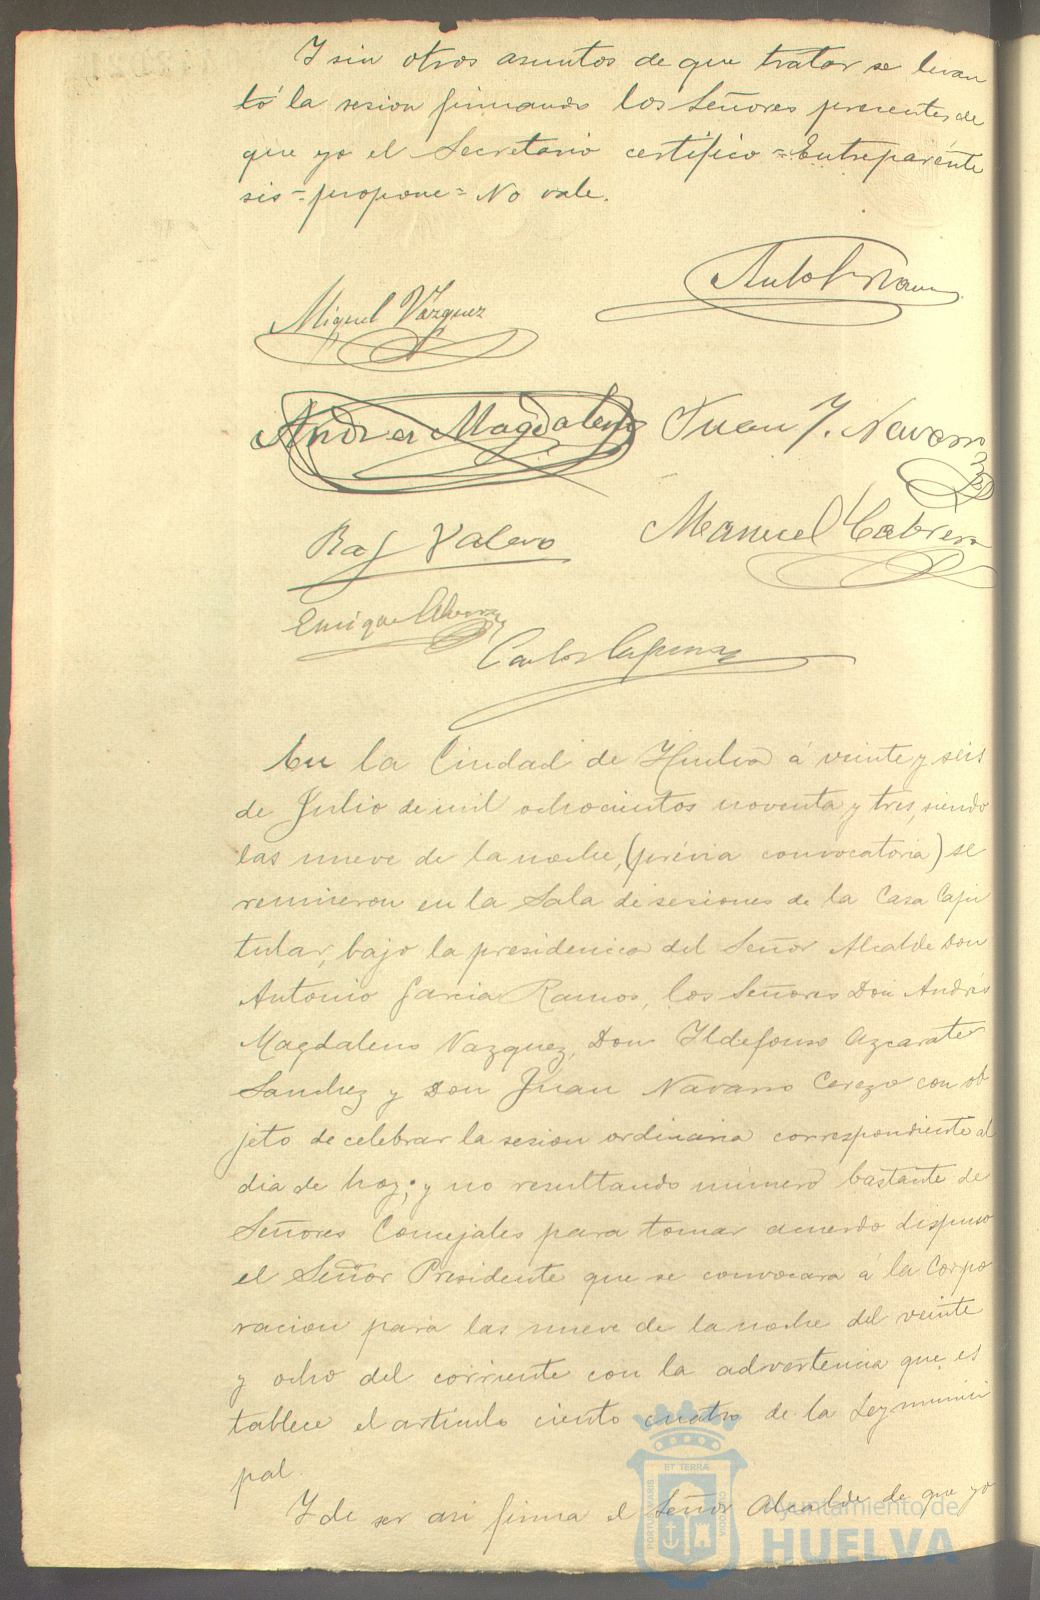 Y sin otros asuntos de que tratar se levan
tó la sesion firmando los Señores presentes de
que yo el Secretario certifico = Entreparénte
sis = propone = No vale.
Miguel Vázquez
Andres Magdaleno
Juan J. Navarro
Raf Valero
Manuel Cabrera
Enrique
Carlos
En la Ciudad de Huelva á veinte y seis
de Julio de mil ochocientos noventa y tres, siendo
las nueve de la noche, (prévia convocatoria) se
reunieron en la Sala de sesiones de la Casa Capi
tular, bajo la presidencia del Señor Alcalde Don
Antonio Garcia Ramos, los Señores Don Andrés
Magdaleno Vazquez, Don Ildefonso Azcarate
Sanchez y Don Juan Navarro Cerezo con ob
jeto de celebrar la sesion ordinaria correspondiente al
dia de hoy; y no resultando número bastante de
Señores Concejales para tomar acuerdo dispuso
el Señor Presidente que se convocara á la Corpo
racion para las nueve de la noche del veinte
y ocho del corriente con la advertencia que es
tablece el articulo ciento cuatro de la Ley munici
pal.
Y de ser asi firma el Señor Alcalde de que yo
ET TERRA
PORTUS MARIS
CUSTODIA
Ayuntamiento de
HUELVA